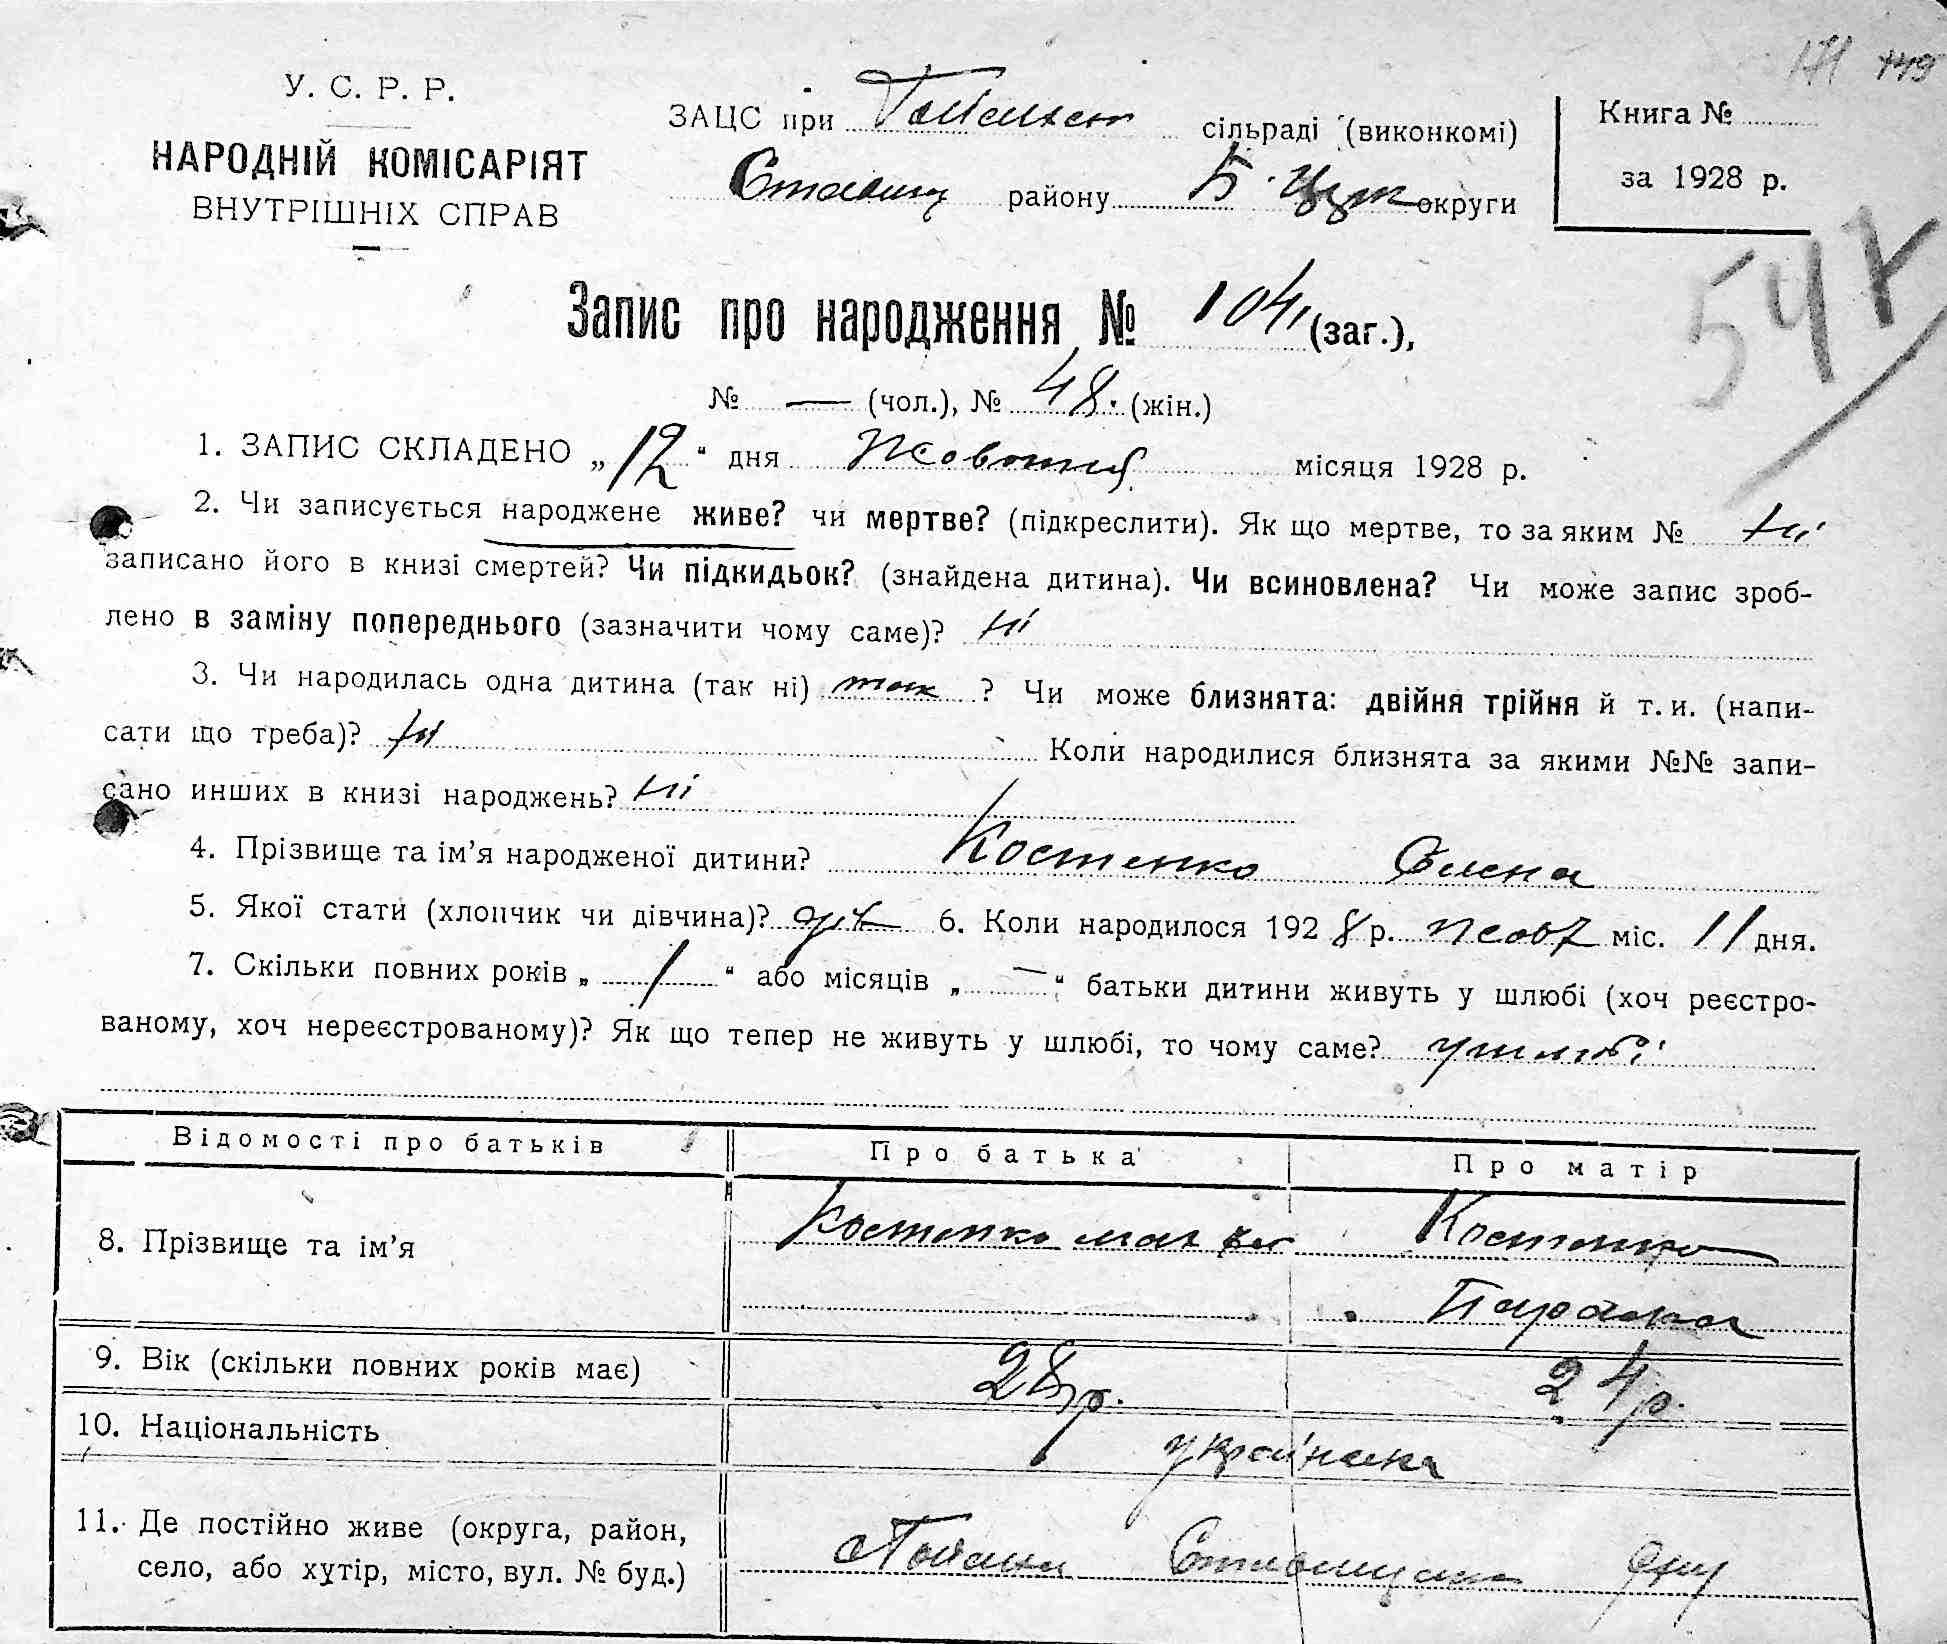 171 149
У. С. Р. Р.
НАРОДНІЙ КОМІСАРІЯТ
ВНУТРІШНІХ СПРАВ
ЗАЦС при сільраді (виконкомі)
Ставищ району Б. Церк округи
Книга №
за 1928 р.
547
Запис про народження № 104 (заг.),
№ — (чол.), № 48. (жін.)
1. ЗАПИС СКЛАДЕНО „12“ дня Жовтня місяця 1928 р.
2. Чи записується народжене живе? чи мертве? (підкреслити). Як що мертве, то за яким № ні
записано його в книзі смертей? Чи підкидьок? (знайдена дитина). Чи всиновлена? Чи може запис зроб-
лено в заміну попереднього (зазначити чому саме)? ні
3. Чи народилась одна дитина (так ні) так ? Чи може близнята: двійня трійня й т. и. (напи-
сати що треба)? ні Коли народилися близнята за якими №№ запи-
сано инших в книзі народжень? ні
4. Прізвище та ім’я народженої дитини? Костенко Олена
5. Якої стати (хлопчик чи дівчина)? дів 6. Коли народилося 1928 р. жовт міс. 11 дня.
7. Скільки повних років „ 1 “ або місяців „ — “ батьки дитини живуть у шлюбі (хоч реєстро-
ваному, хоч нереєстрованому)? Як що тепер не живуть у шлюбі, то чому саме? у шлюбі
Відомості про батьків Про батька Про матір
8. Прізвище та ім’я Костенко Костенко
Параска
9. Вік (скільки повних років має) 28 р. 24 р.
10. Національність українська
11. Де постійно живе (округа, район,
село, або хутір, місто, вул. № буд.)